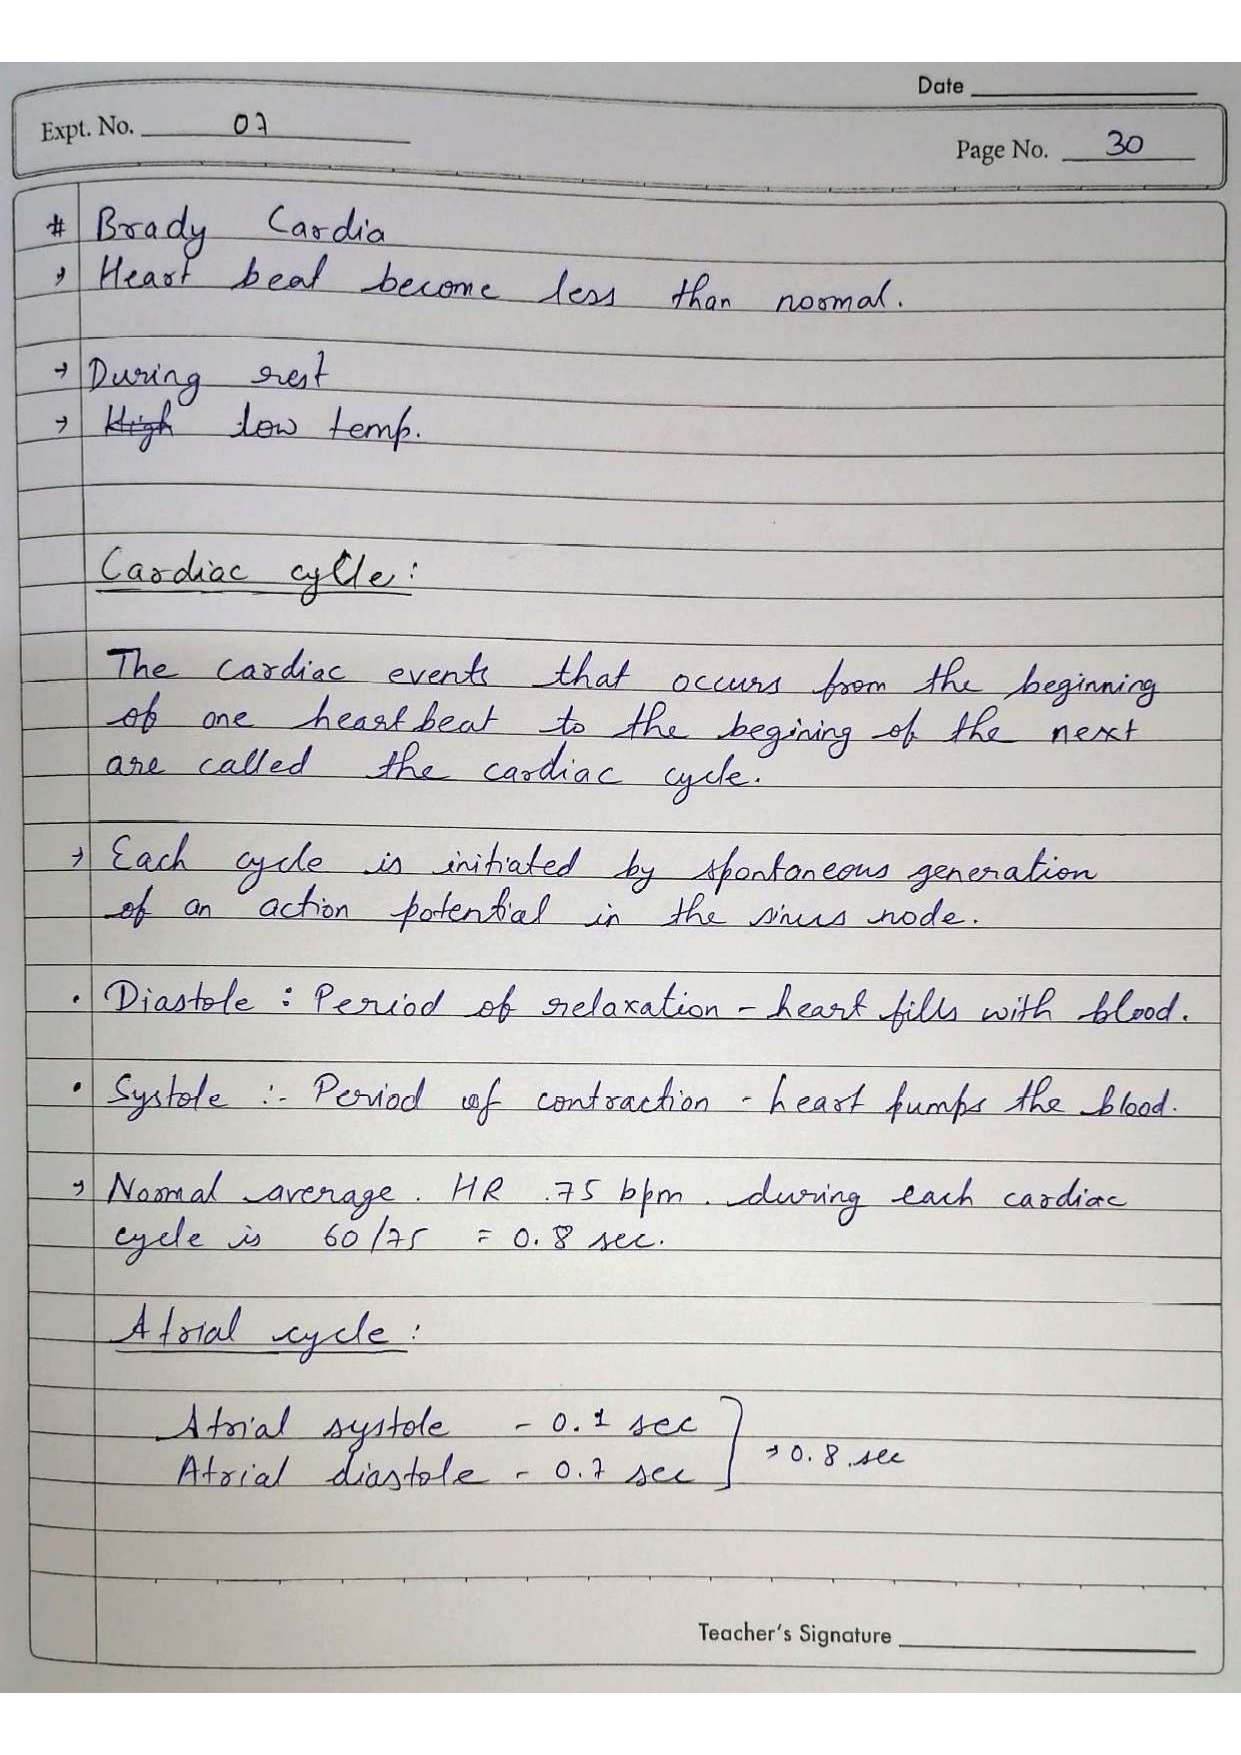 Date
Expt. No. 07
Page No. 30
# Brady Cardia
→ Heart beat become less than normal.
→ During rest
→ ~~High~~ low temp.
Cardiac cycle:
The cardiac events that occurs from the beginning
of one heartbeat to the begining of the next
are called the cardiac cycle.
→ Each cycle is initiated by spontaneous generation
of an action potential in the sinus node.
• Diastole : Period of relaxation - heart fills with blood.
• Systole :- Period of contraction - heart pumps the blood.
→ Normal average. HR .75 bpm. during each cardiac
cycle is 60/75 = 0.8 sec.
Atrial cycle:
Atrial systole - 0.1 sec
→ 0.8 sec
Atrial diastole - 0.7 sec
Teacher's Signature